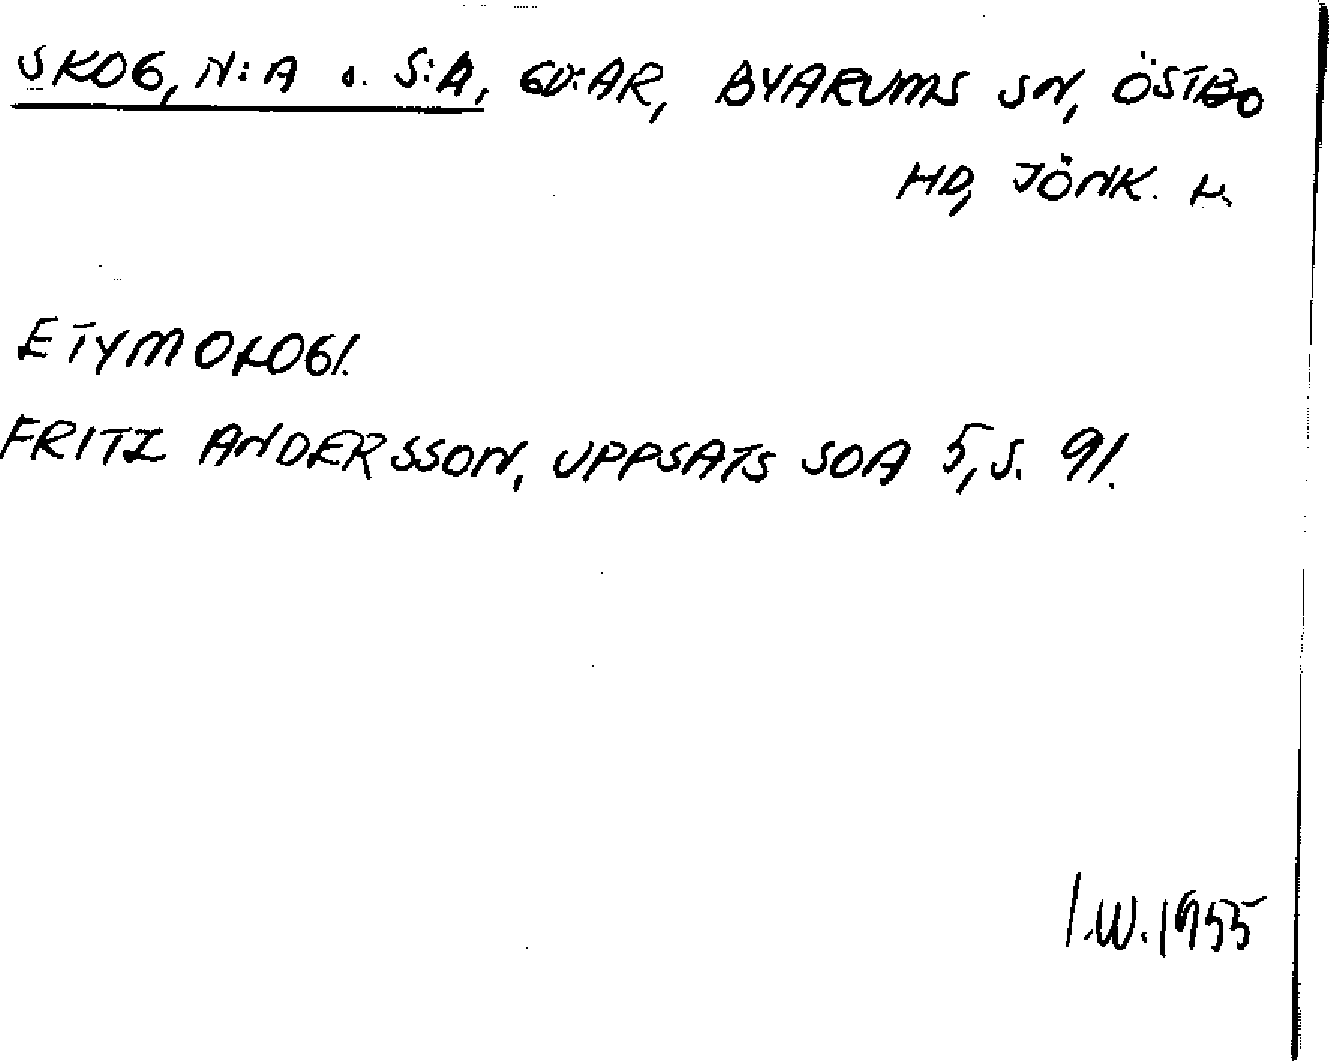 SKOG, N:A o. S:A, GD:AR, BYARUMS SN, ÖSTBO
HD, JÖNK. L.
ETYMOLOGI.
FRITZ ANDERSSON, UPPSATS SOA 5, S. 91.
I.W. 1955